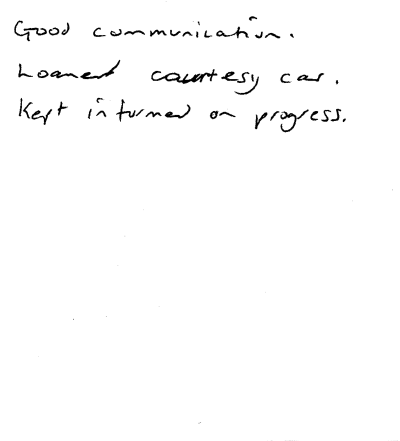 Good communication.
Loaned courtesy car.
Kept informed on progress.